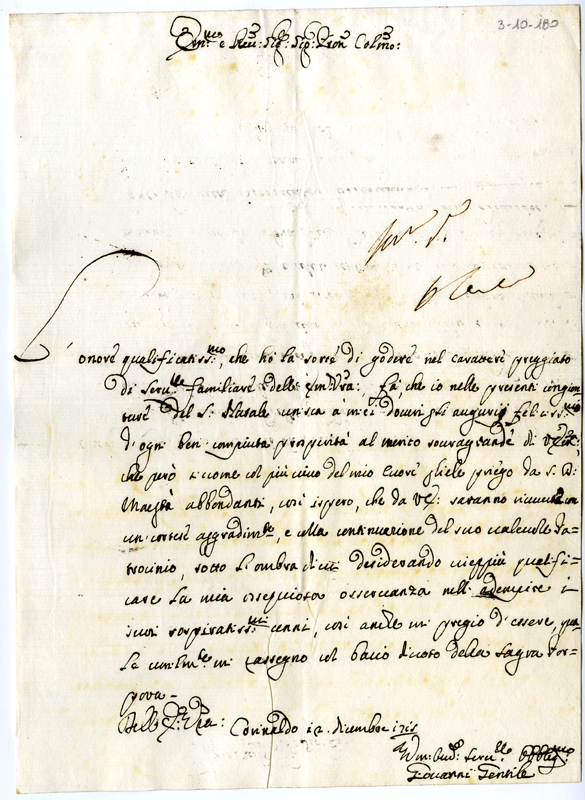 3-10-180
Em:mo e Rev: Sig: Sig: Pron Colmo:
L'onore qualificatiss:mo, che hò la sorte di godere nel carattere preggiato
di Serv:le familiare dell' Em: Vra: fà, che io nelle presenti congion-
ture del S: Natale unisca à miei doveri gli augurij feliciss:mi
d'ogni ben compiuta prosperità al merito sovragrande di V: Em:
che però si come col più vivo del mio cuore gliele priego da S: D:
Maestà abbondanti, così spero, che da V: E: saranno ricevute con
un cortese aggradim:to, e colla continuazione del suo valevole Pa-
trocinio, sotto l'ombra di cui desiderando vieppiù qualifi-
care la mia ossequiosa osservanza nell' adempire i
suoi sospiratiss:mi cenni, così anche mi pregio d'essere, qua-
le umilm:te mi rassegno col bacio divoto della Sagra Por-
pora -
Dell' E: Vra: Corinaldo 12 dicembre
Um: Dev: Serv:le Obblig:mo
Giovanni Gentile